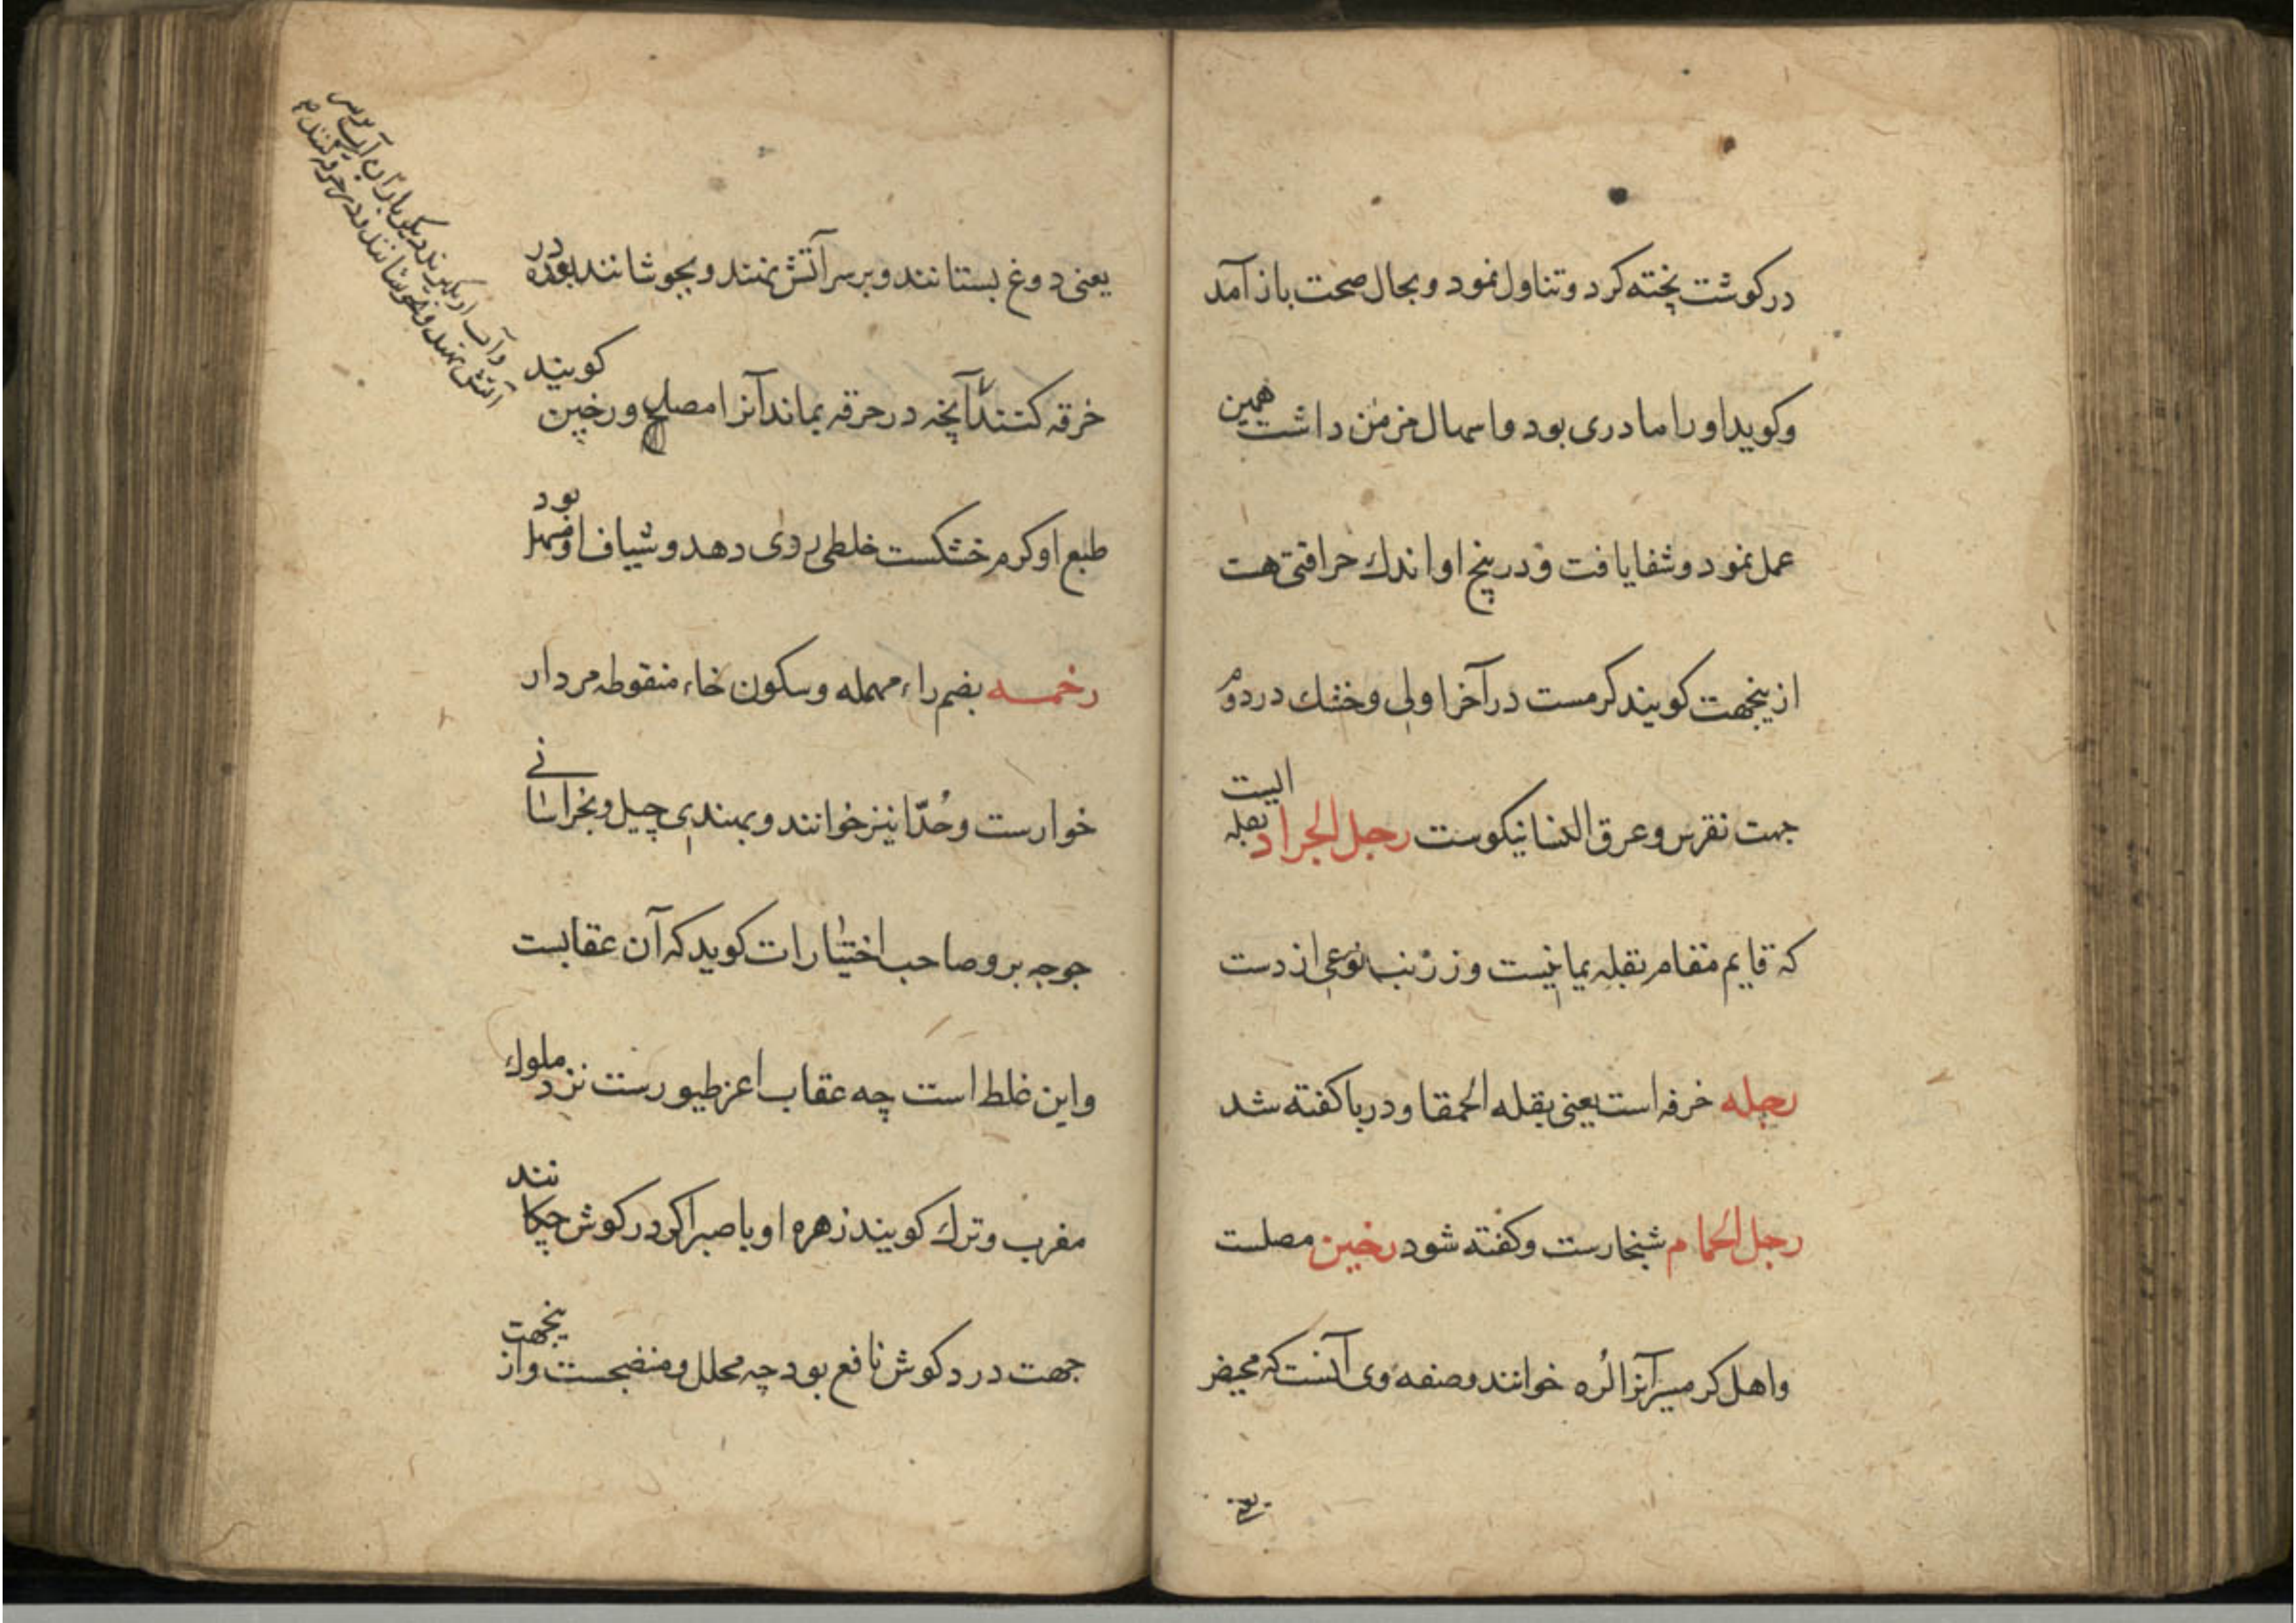 در کوشت پخته کرد و تناول نمود و بحال صحت باز آمد
و کوید او را مادری بود و اسهال مزمن داشت همین
عمل نمود و شفا یافت و در بیخ او اندك حرافتی هست
ازینجهت کویند کرمست در آخر اولی و خشك در دوم
جهت نقرس و عرق النسا نیکوست رجل الجراد بقله الیست
که قایم مقام بقله یمانیست و زرنب نوعی از دست
رجله خرفه است یعنی بقله الحمقا و در با کفته شد
رجل الحمام شنجارست و کفته شود رخبین مصلست
و اهل کرمسیر آنرا لُره خوانند و صنعه وی آنست که مخیض
یعنی دوغ بستانند و بر سر آتش نهند و بجوشانند و در
خرقه کنند تا آنچه در خرقه بماند آنرا مصل و رخپین کویند
طبع او کرم خشکست خلطی ردی دهد و شیاف او مسهل بود
رخمه بضم راء مهمله و سکون خاء منقوطه مردار
خوارست و حُدّا نیز خوانند و بهندی چیل و بخراسانے
جوجه برو صاحب اختیارات کوید که آن عقابست
و این غلط است چه عقاب اعز طیورست نزد ملوك
مغرب و ترك کویند زهره او با صبر اکر در کوش چکانند
جهت درد کوش نافع بود چه محلل و منضجست و ازینجهت
و آب او بکیرند دیکر بار آن آب بر سر
آتش نهند و بجوشانند و در خرقه کنند